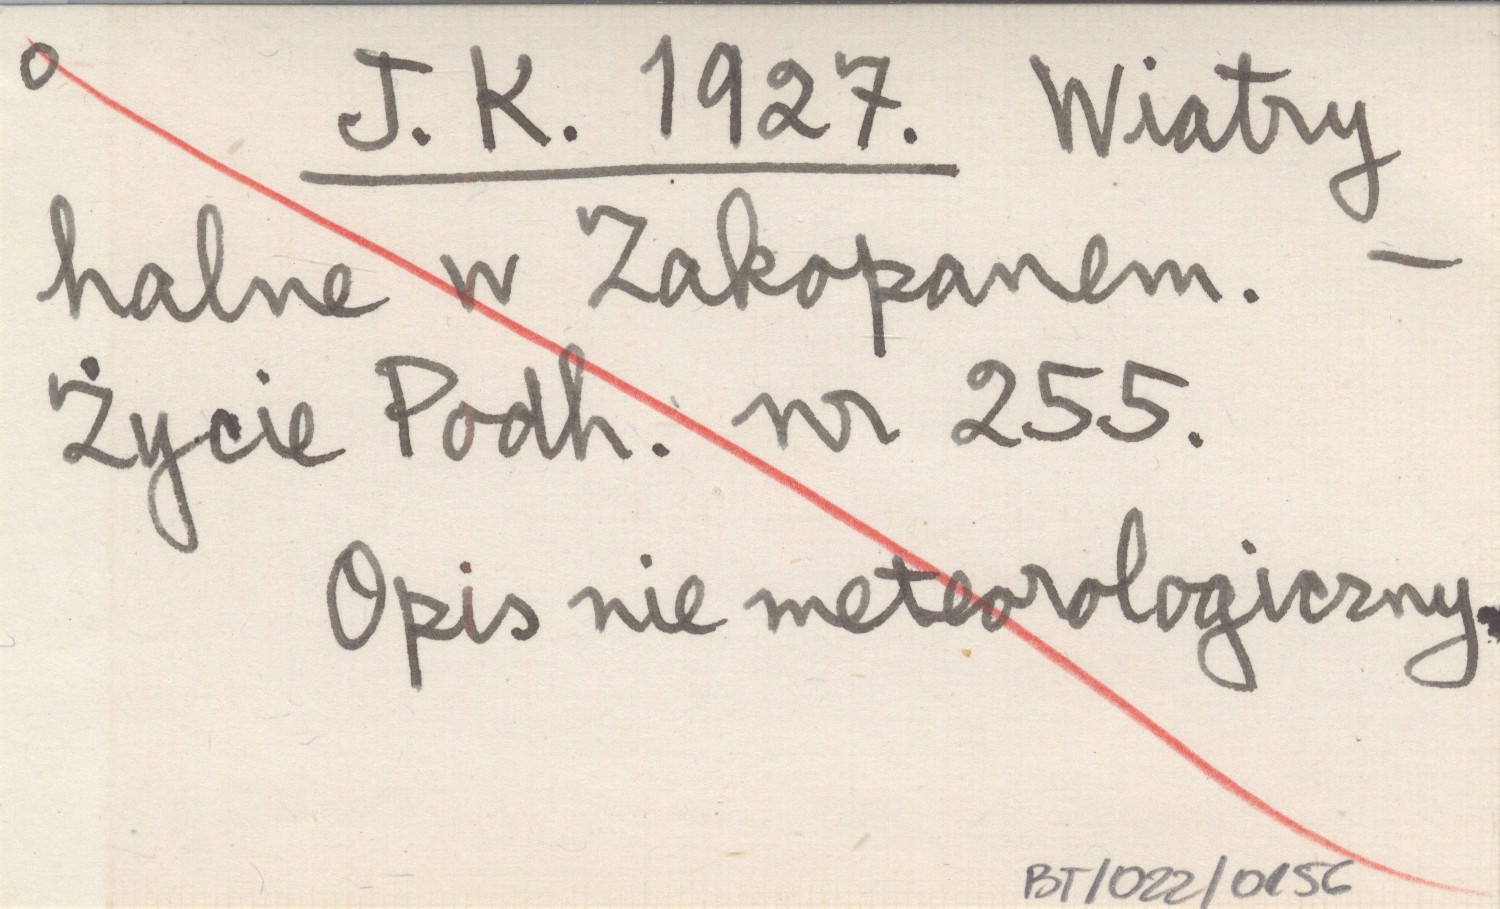 o J. K. 1927. Wiatry
halne w Zakopanem. —
Życie Podh. nr 255.
Opis nie meteorologiczny.
BT/022/0156